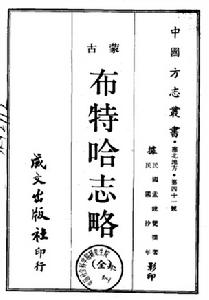 中國方志叢書·塞北地方·第四十一號
據民國孟定恭著
民國抄年影印
蒙古
布特哈志略
(全)
成文出版社印行